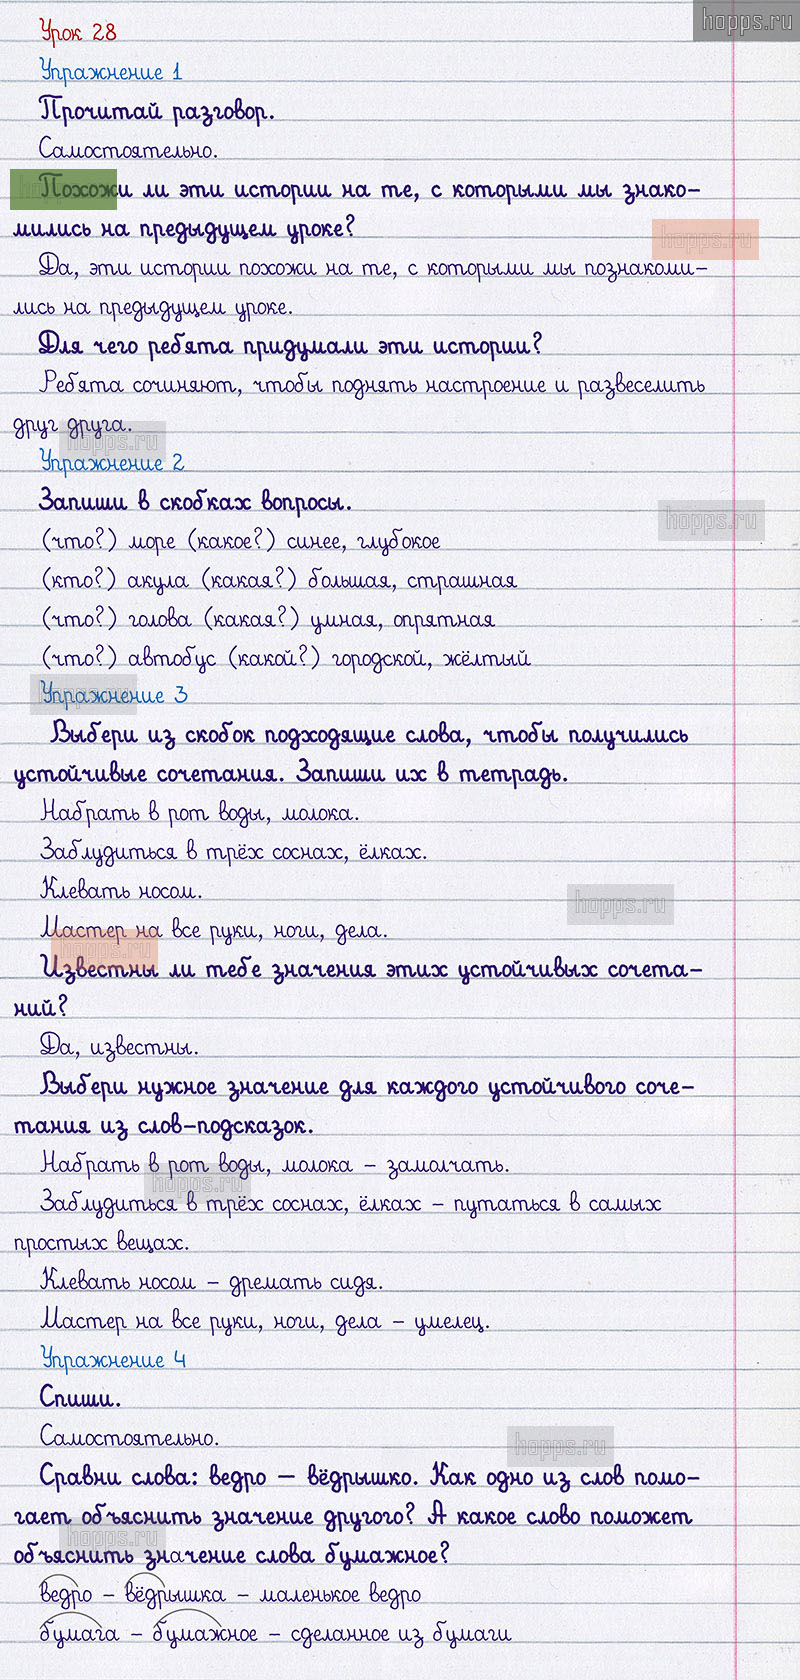 hopps.ru
Урок 28
Упражнение 1
Прочитай разговор.
Самостоятельно.
Похожи ли эти истории на те, с которыми мы знако-
мились на предыдущем уроке?
hopps.ru
Да, эти истории похожи на те, с которыми мы познакоми-
лись на предыдущем уроке.
Для чего ребята придумали эти истории?
Ребята сочиняют, чтобы поднять настроение и развеселить
друг друга.
hopps.ru
Упражнение 2
Запиши в скобках вопросы.
hopps.ru
(что?) море (какое?) синее, глубокое
(кто?) акула (какая?) большая, страшная
(что?) голова (какая?) умная, опрятная
(что?) автобус (какой?) городской, жёлтый
Упражнение 3
Выбери из скобок подходящие слова, чтобы получились
устойчивые сочетания. Запиши их в тетрадь.
Набрать в рот воды, молока.
Заблудиться в трёх соснах, ёлках.
Клевать носом.
hopps.ru
Мастер на все руки, ноги, дела.
hopps.ru
Известны ли тебе значения этих устойчивых сочета-
ний?
Да, известны.
Выбери нужное значение для каждого устойчивого соче-
тания из слов-подсказок.
Набрать в рот воды, молока – замолчать.
hopps.ru
Заблудиться в трёх соснах, ёлках – путаться в самых
простых вещах.
Клевать носом – дремать сидя.
Мастер на все руки, ноги, дела – умелец.
Упражнение 4
Спиши.
Самостоятельно.
hopps.ru
Сравни слова: ведро — вёдрышко. Как одно из слов помо-
гает объяснить значение другого? А какое слово поможет
hopps.ru
объяснить значение слова бумажное?
ведро – вёдрышка – маленькое ведро
бумага – бумажное – сделанное из бумаги